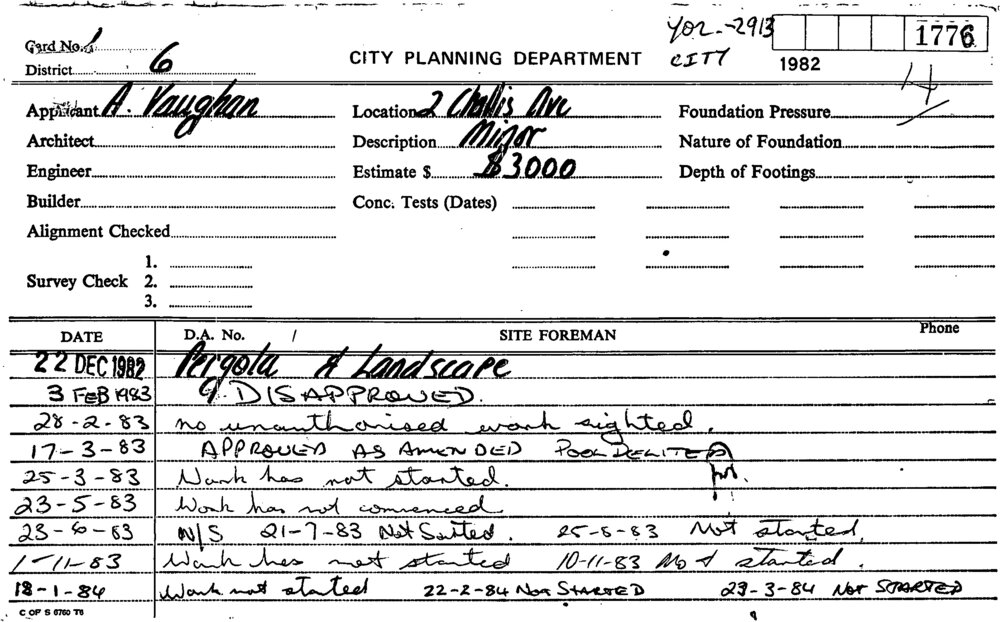 YOZ-2913 1776
Card No. 1 CITY
District 6 CITY PLANNING DEPARTMENT 1982
H
Applicant A. Vaughan Location 2 Challis Ave Foundation Pressure
Architect Description Minor Nature of Foundation
Engineer Estimate $ $3000 Depth of Footings
Builder Conc. Tests (Dates)
Alignment Checked
1.
Survey Check 2.
3.
DATE D.A. No. / SITE FOREMAN Phone
22 DEC 1982 Pergola & Landscape
3 FEB 1983 9. DISAPPROVED.
28-2-83 no unauthorised work sighted.
17-3-83 APPROVED AS AMENDED POOL DELITED
25-3-83 Work has not started.
23-5-83 Work has not commenced
23-6-83 N/S 21-7-83 Not Started. 25-8-83 Not started.
1-11-83 Work has not started 10-11-83 Not started.
18-1-84 Work not started 22-2-84 Not STARTED 23-3-84 Not STARTED
C OF S 6760 T6